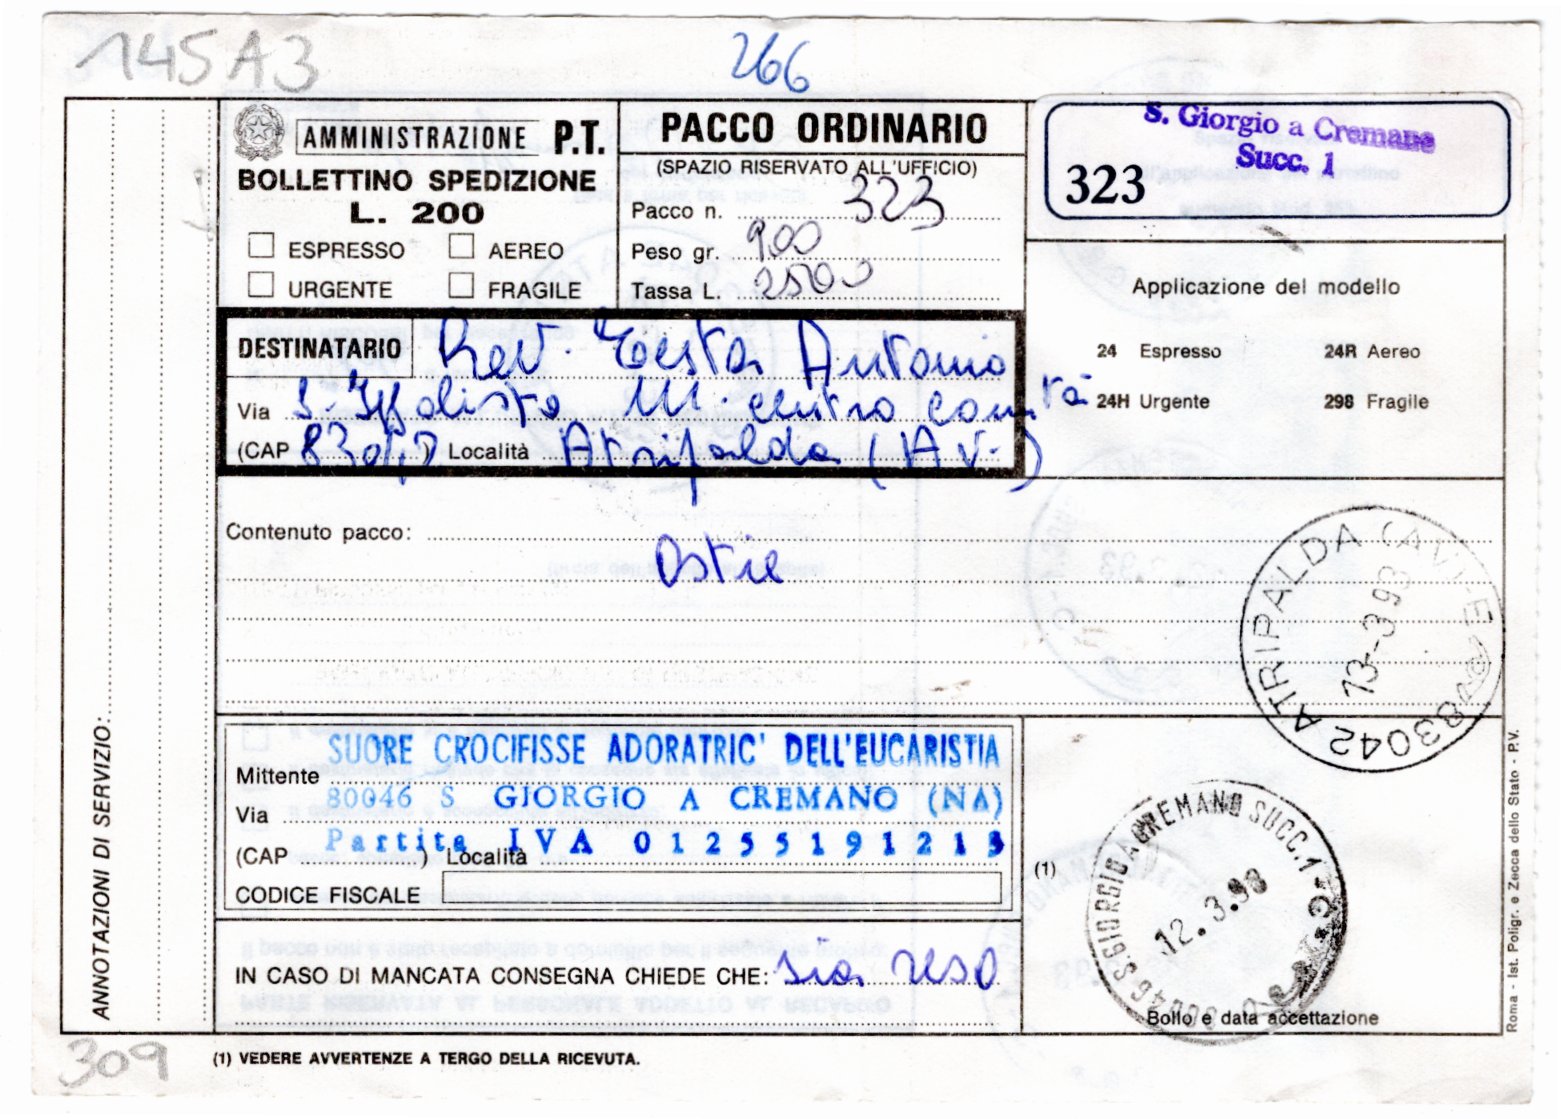 145A3
266
AMMINISTRAZIONE P.T.
BOLLETTINO SPEDIZIONE
L. 200
ESPRESSO AEREO
URGENTE FRAGILE
PACCO ORDINARIO
(SPAZIO RISERVATO ALL'UFFICIO)
Pacco n. 323
Peso gr. 900
Tassa L. 2500
S. Giorgio a Cremano
Succ. 1
323
Applicazione del modello
24 Espresso 24R Aereo
24H Urgente 298 Fragile
DESTINATARIO Rev. Testa Antonio
Via S. Ippolisto M. centro comtà
(CAP 83042) Località Atripalda (Av.)
Contenuto pacco:
Ostie
83042 ATRIPALDA (AV)-E
13-3 93
Mittente SUORE CROCIFISSE ADORATRIC' DELL'EUCARISTIA
Via 80046 S GIORGIO A CREMANO (NA)
(CAP ) Località Partita IVA 01255191213
CODICE FISCALE
(1)
80046 S. GIORGIO A CREMANO SUCC. 1
12.3.93
Bollo e data accettazione
IN CASO DI MANCATA CONSEGNA CHIEDE CHE: sia reso
ANNOTAZIONI DI SERVIZIO:
Roma - Ist. Poligr. e Zecca dello Stato - P.V.
309
(1) VEDERE AVVERTENZE A TERGO DELLA RICEVUTA.